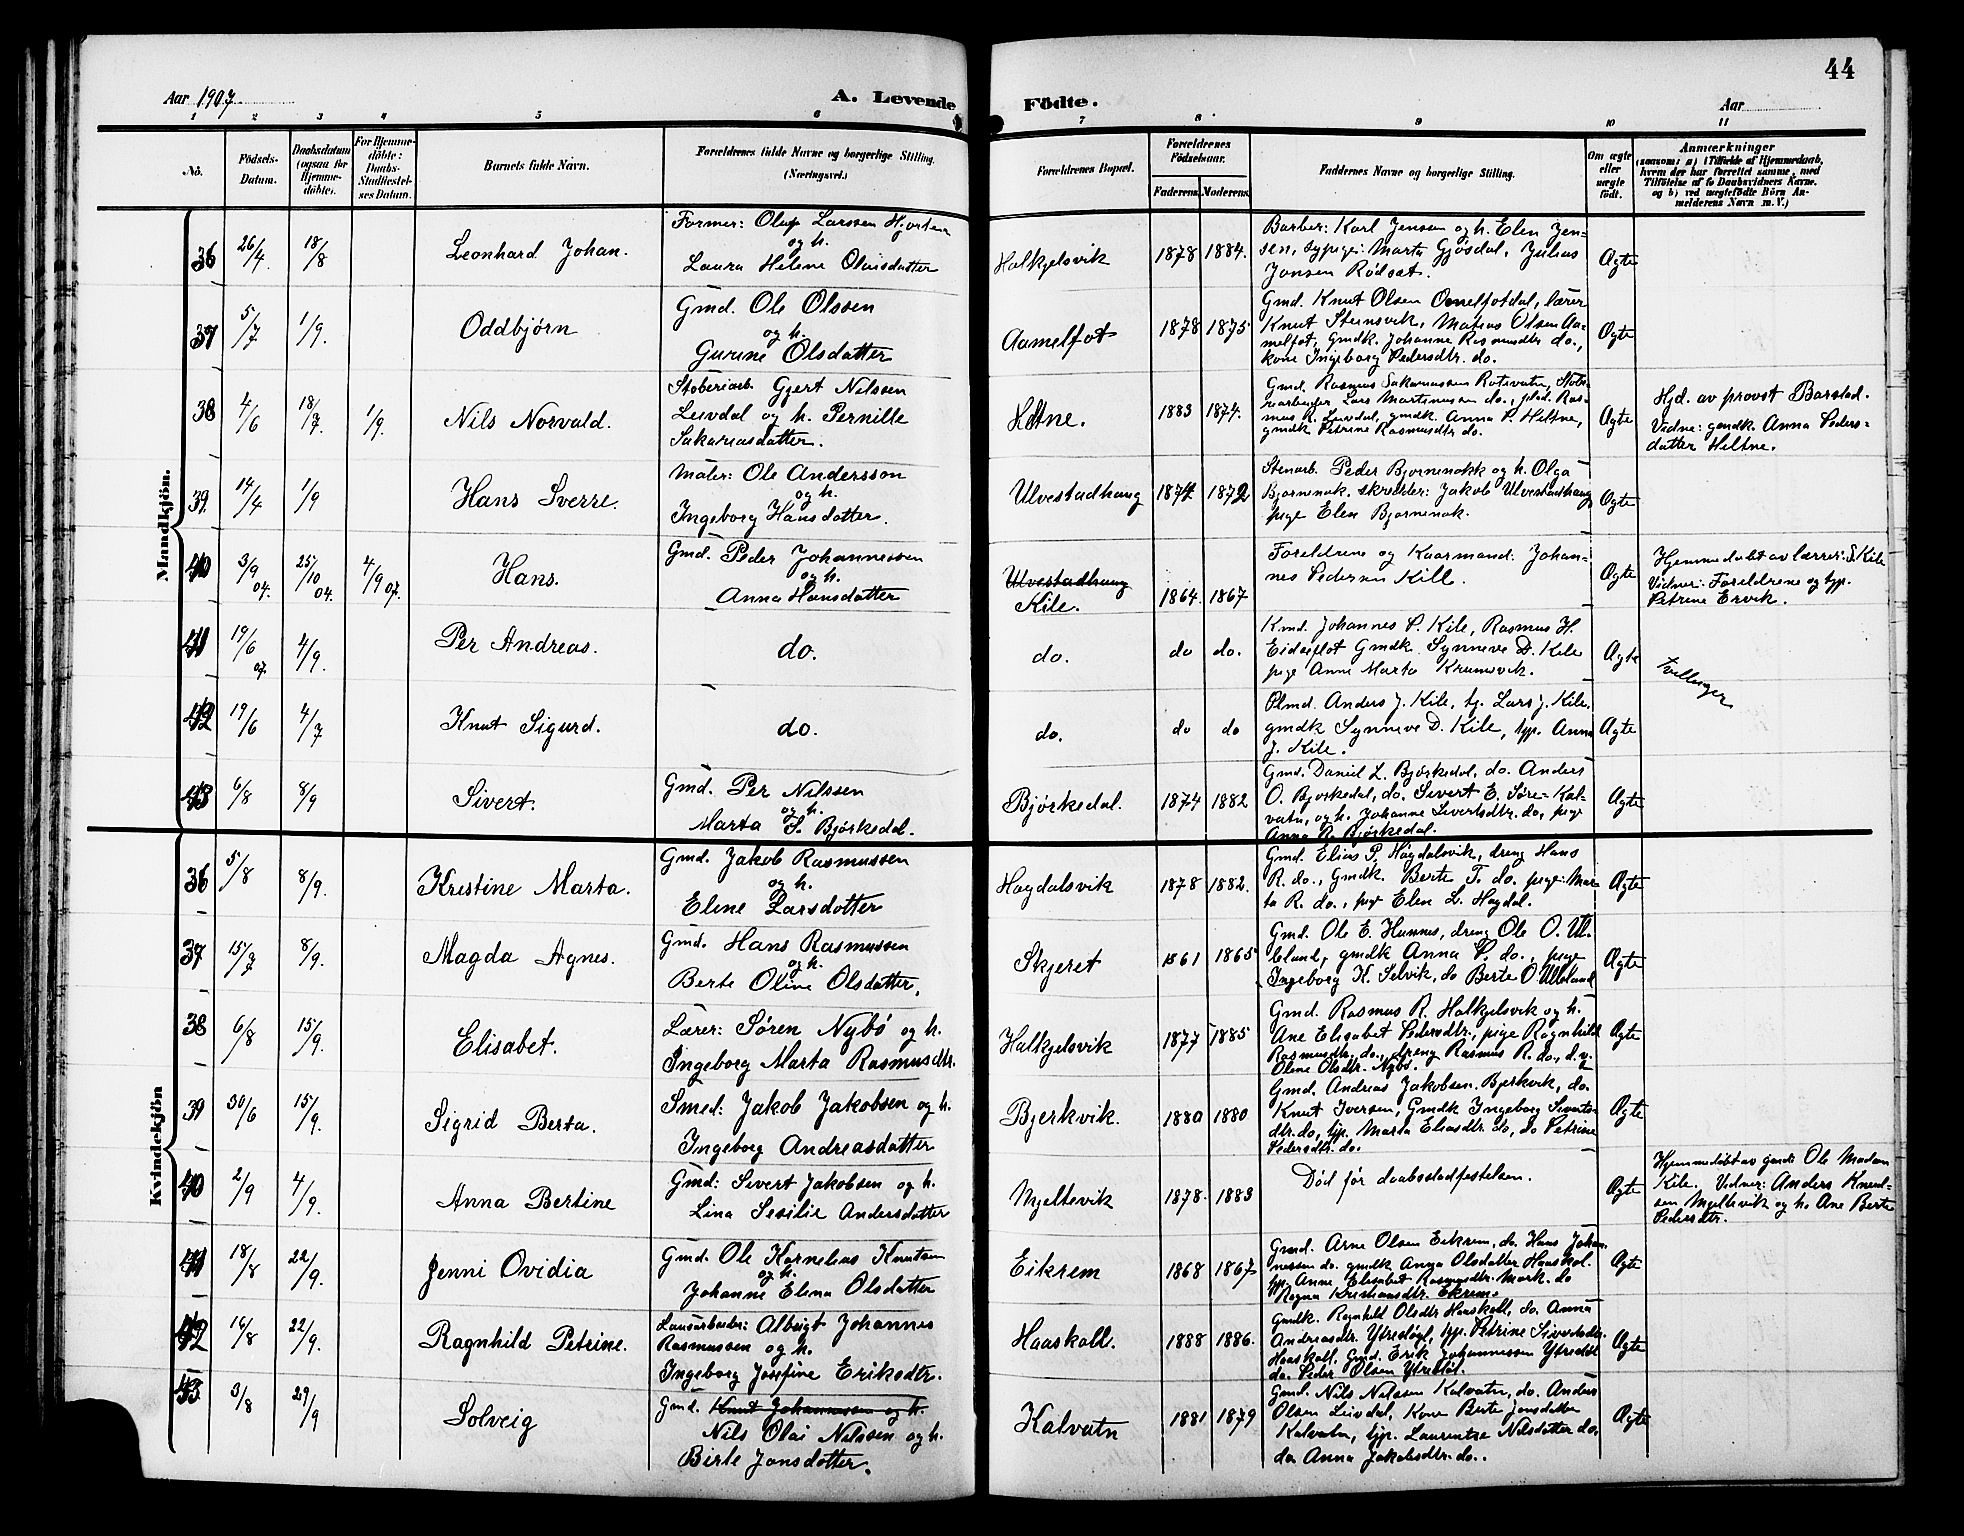 44
Aar 1907
A. Levende
Födte.
Aar
1 2 3 4 5 6 7 8 9 10 11
No.
Födsels-
Datum.
Daabsdatum
(ogsaa for
Hjemme-
döbte).
For Hjemme-
döbte:
Daabs-
Stadfæstel-
ses Datum.
Barnets fulde Navn.
Forældrenes fulde Navne og borgerlige Stilling.
(Næringsvei.)
Forældrenes Bopæl.
Forældrenes
Födselsaar.
Faderens. Moderens.
Faddernes Navne og borgerlige Stilling.
Om ægte
eller
uægte
født.
Anmærkninger
(saasom: a) i Tilfælde af Hjemmedaab,
hvem der har forrettet samme, med
Tilföielse af to Daabsvidners Navne,
og b) ved uægtefödte Börn An-
melderens Navn m. V.)
Mandkjön.
36 26/4 18/8 Leonhard Johan.
Former: Oluf Larssen Hjorten
og h.
Laura Helene Olaisdatter
Halkjelsvik 1878 1884.
Barber: Karl Jenssen og h. Elen Jen-
sen, sypige: Marta Gjøsdal, Julius
Jonsen Rødsæt.
Ægte
37 5/7 1/9. Oddbjørn
Gmd. Ole Olssen
og h.
Gurine Olsdatter
Aamelfot 1878 1875
Gmd. Knut Olsen Omelfotdal, lærer
Knut Steinsvik, Matias Olsen Aa-
melfot, Gmdk. Johanne Rasmusdtr do.,
kone Ingeborg Pedersdtr. do.
Ægte
38 4/6 18/7. 1/9. Nils Norvald.
Stoberiarb. Gjert Nilssen
Leivdal og h. Pernille
Sakariasdatter.
Heltne. 1883 1874.
Gmd. Rasmus Sakariassen Rotevatn, Stobe-
riarbeider Lars Martinussen do., Ras-
mus R. Leivdal, gmdk. Anna P. Heltne,
gmdk Petrine Rasmusdtr do.
Ægte
Hjd. av provst Barstad.
Vidne: gmdk Anna Peders-
datter Heltne.
39 14/4 1/9 Hans Sverre.
Maler: Ole Andersson
og h.
Ingeborg Hansdatter.
Ulvestadhaug 1874 1872
Stenarb. Peder Bjørnenakk og h. Olga
Bjørnenak. skredder: Jakob Ulvestadhaug
pige Elen Bjørnenak.
Ægte
40 3/9 04. 25/10 04. 4/9 07. Hans.
Gmd. Peder Johannessen
og h.
Anna Hansdatter
Ulvestadhaug
Kile. 1864. 1867
Foreldrene og Kaarmand: Johan-
nes Pedersen Kill.
Ægte
Hjemmedøbt av lærer: S. Kile
Vidner: Foreldrene og typ.
Petrine Ervik.
41 19/6 07. 4/9. Per Andreas.
do.
do. do do.
Kmd. Johannes P. Kile, Rasmus H.
Eidseflot Gmdk. Synneve D. Kile
pige Anne Marta Krumsvik.
Ægte
tvillinger
42 19/6 4/7 Knut Sigurd.
do.
do. do do
Olmd. Anders J. Kile, tj. Lars J. Kile,
gmdk Synneve D. Kile, typ. Anna
J. Kile.
Ægte
43 6/8 8/9 Sivert.
Gmd. Per Nilssen
og h.
Marta S. Bjørkedal.
Bjørkedal. 1874 1882
Gmd. Daniel L. Bjørkedal, do. Anders
O. Bjørkedal, do. Sivert E. Søre-Kal-
vatn, og h. Johanne Sivertsdtr. do, pige
Anna R. Bjørkedal.
Ægte
Kvindekjön
36 5/8 8/9. Kristine Marta.
Gmd. Jakob Rasmussen
og h.
Eline Larsdatter
Høgdalsvik 1878 1882.
Gmd. Elias P. Høgdalsvik, dreng Hans
R. do., Gmdk. Berte T. do. pige: Mar-
ta R. do., pige Elen L. Høgdal.
Ægte
37 15/7 8/9. Magda Agnes.
Gmd. Hans Rasmussen
og h.
Berte Oline Olsdatter.
Skjeret 1861 1865
Gmd. Ole E. Hunnes, dreng Ole O. Ul-
eland, gmdk Anna P. do., pige
Ingeborg K. Selvik, do Berte O. Ulleland
Ægte
38 6/8 15/9. Elisabet.
Lærer: Søren Nybø og h.
Ingeborg Marta Rasmusdtr.
Halkjelsvik 1877 1885
Gmd. Rasmus R. Halkjelsvik og h.
Ane Elisabet Pedersdtr., pige Ragnhild
Rasmusdtr. do., dreng Rasmus R. do., d. v.
Oline Olsdtr. Nybø.
Ægte
39 30/6 15/9. Sigrid Berta.
Smed: Jakob Jakobsen og h.
Ingeborg Andreasdatter
Bjerkvik. 1880 1880
Gmd. Andreas Jakobsen Bjerkvik, do.
Knut Iversen, Gmdk Ingeborg Siverts-
dtr. do, tjp. Marta Eliasdtr. do, do Petrine
Pedersdtr. do.
Ægte
40 2/9 4/9. Anna Bertine
Gmd: Sivert Jakobsen og h.
Lina Sesilie Andersdatter
Mjeltevik 1878. 1883
Død før daabsstadfestelsen.
Ægte
Hjemmedøbt av gmd: Ole Madsen
Kile. Vidner: Anders Knud-
sen Mjeltevik og h. Ane Berte
Pedersdtr.
41 18/8 22/9. Jenni Ovidia
Gmd. Ole Kornelius Knutsen
og h.
Johanne Elena Olsdatter
Eikrem 1868 1867
Gmd. Arne Olsen Eikrem, do. Hans Johan-
nessen do. gmdk Anna Olsdatter Haaskol.
tjp. Anne Elisabet Rasmusdtr. Mork. do
Ragna Kristiansdtr. Ekrem.
Ægte
42 16/8 22/9. Ragnhild Petrine.
Løusarbeider: Albrigt Johannes
Rasmussen og h.
Ingeborg Josefine Eriksdtr.
Haaskoll. 1888 1886.
Gmdk. Ragnhild Olsdtr Haaskoll, do. Anna
Andreasdtr. Ytrestøyl, tyP. Petrine Sivertsdtr.
Haaskoll, Gmd. Erik Johannessen Ytrestøl
do. Peder Olsen Ytrestøl.
Ægte
43 3/8 29/9 Solveig
Gmd. Knut Johannessen og h.
Nils Olai Nilssen og h.
Birte Jonsdatter.
Kalvatn 1881 1879
Gmd. Nils Nilssen Kalvatn, do. Anders
Olsen Leivdal, Kone Berte Jonsdatter
Kalvatn, tjp. Laurentse Nilsdatter do.
do Anna Jakobsdtr. do..
Ægte